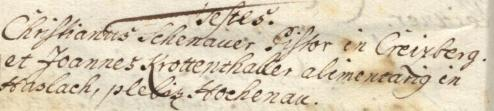 Testes.
Christianus Schenauer Pistor in Creizberg.
et Joannes Krottenthaller alimentarius in
Haslach, plebis Hochenau.